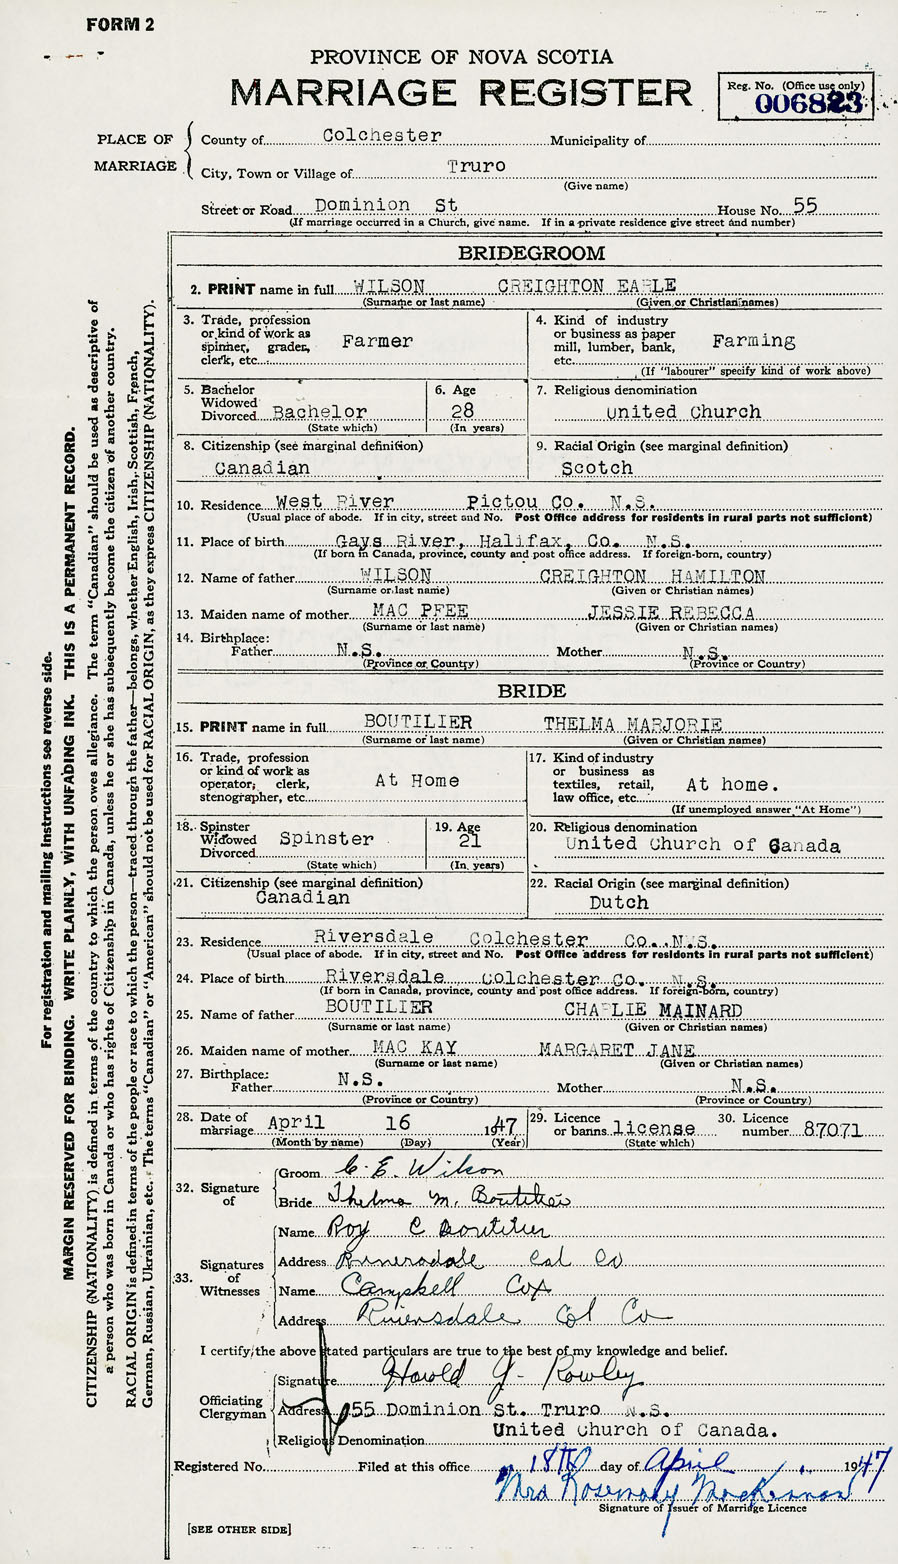 FORM 2
PROVINCE OF NOVA SCOTIA
MARRIAGE REGISTER
Reg. No. (Office use only)
006823
PLACE OF MARRIAGE
County of Colchester Municipality of
City, Town or Village of Truro
(Give name)
Street or Road Dominion St House No. 55
(If marriage occurred in a Church, give name. If in a private residence give street and number)
BRIDEGROOM
2. PRINT name in full WILSON CREIGHTON EARLE
(Surname or last name) (Given or Christian names)
3. Trade, profession or kind of work as spinner, grader, clerk, etc. Farmer
4. Kind of industry or business as paper mill, lumber, bank, etc. Farming
(If "labourer" specify kind of work above)
5. Bachelor Widowed Divorced Bachelor
(State which)
6. Age 28
(In years)
7. Religious denomination
United Church
8. Citizenship (see marginal definition)
Canadian
9. Racial Origin (see marginal definition)
Scotch
10. Residence West River Pictou Co. N.S.
(Usual place of abode. If in city, street and No. Post Office address for residents in rural parts not sufficient)
11. Place of birth Gays River, Halifax, Co. N.S.
(If born in Canada, province, county and post office address. If foreign-born, country)
12. Name of father WILSON CREIGHTON HAMILTON
(Surname or last name) (Given or Christian names)
13. Maiden name of mother MAC PFEE JESSIE REBECCA
(Surname or last name) (Given or Christian names)
14. Birthplace:
Father N.S. Mother N.S.
(Province or Country) (Province or Country)
BRIDE
15. PRINT name in full BOUTILIER THELMA MARJORIE
(Surname or last name) (Given or Christian names)
16. Trade, profession or kind of work as operator, clerk, stenographer, etc. At Home
17. Kind of industry or business as textiles, retail, law office, etc. At home.
(If unemployed answer "At Home")
18. Spinster Widowed Divorced Spinster
(State which)
19. Age
21
(In years)
20. Religious denomination
United Church of Canada
21. Citizenship (see marginal definition)
Canadian
22. Racial Origin (see marginal definition)
Dutch
23. Residence Riversdale Colchester Co. N.S.
(Usual place of abode. If in city, street and No. Post Office address for residents in rural parts not sufficient)
24. Place of birth Riversdale Colchester Co. N.S.
(If born in Canada, province, county and post office address. If foreign-born, country)
25. Name of father BOUTILIER CHARLIE MAINARD
(Surname or last name) (Given or Christian names)
26. Maiden name of mother MAC KAY MARGARET JANE
(Surname or last name) (Given or Christian names)
27. Birthplace:
Father N.S. Mother N.S.
(Province or Country) (Province or Country)
28. Date of marriage April 16 1947
(Month by name) (Day) (Year)
29. Licence or banns license
(State which)
30. Licence number 87071
32. Signature of
Groom C. E. Wilson
Bride Thelma M. Boutilier
33. Signatures of Witnesses
Name Roy C Boutilier
Address Riversdale Col Co
Name Campbell Cox
Address Riversdale Col Co
I certify the above stated particulars are true to the best of my knowledge and belief.
Officiating Clergyman
Signature Harold J. Rowley
Address 55 Dominion St. Truro N.S.
Religious Denomination United Church of Canada.
Registered No. Filed at this office 18th day of April 1947
Mrs Rosemary MacKinnon
Signature of Issuer of Marriage Licence
[SEE OTHER SIDE]
For registration and mailing instructions see reverse side.
MARGIN RESERVED FOR BINDING. WRITE PLAINLY, WITH UNFADING INK. THIS IS A PERMANENT RECORD.
CITIZENSHIP (NATIONALITY) is defined in terms of the country to which the person owes allegiance. The term "Canadian" should be used as descriptive of
a person who was born in Canada or who has rights of Citizenship in Canada, unless he or she has subsequently become the citizen of another country.
RACIAL ORIGIN is defined in terms of the people or race to which the person—traced through the father—belongs, whether English, Irish, Scottish, French,
German, Russian, Ukrainian, etc. The terms "Canadian" or "American" should not be used for RACIAL ORIGIN, as they express CITIZENSHIP (NATIONALITY).